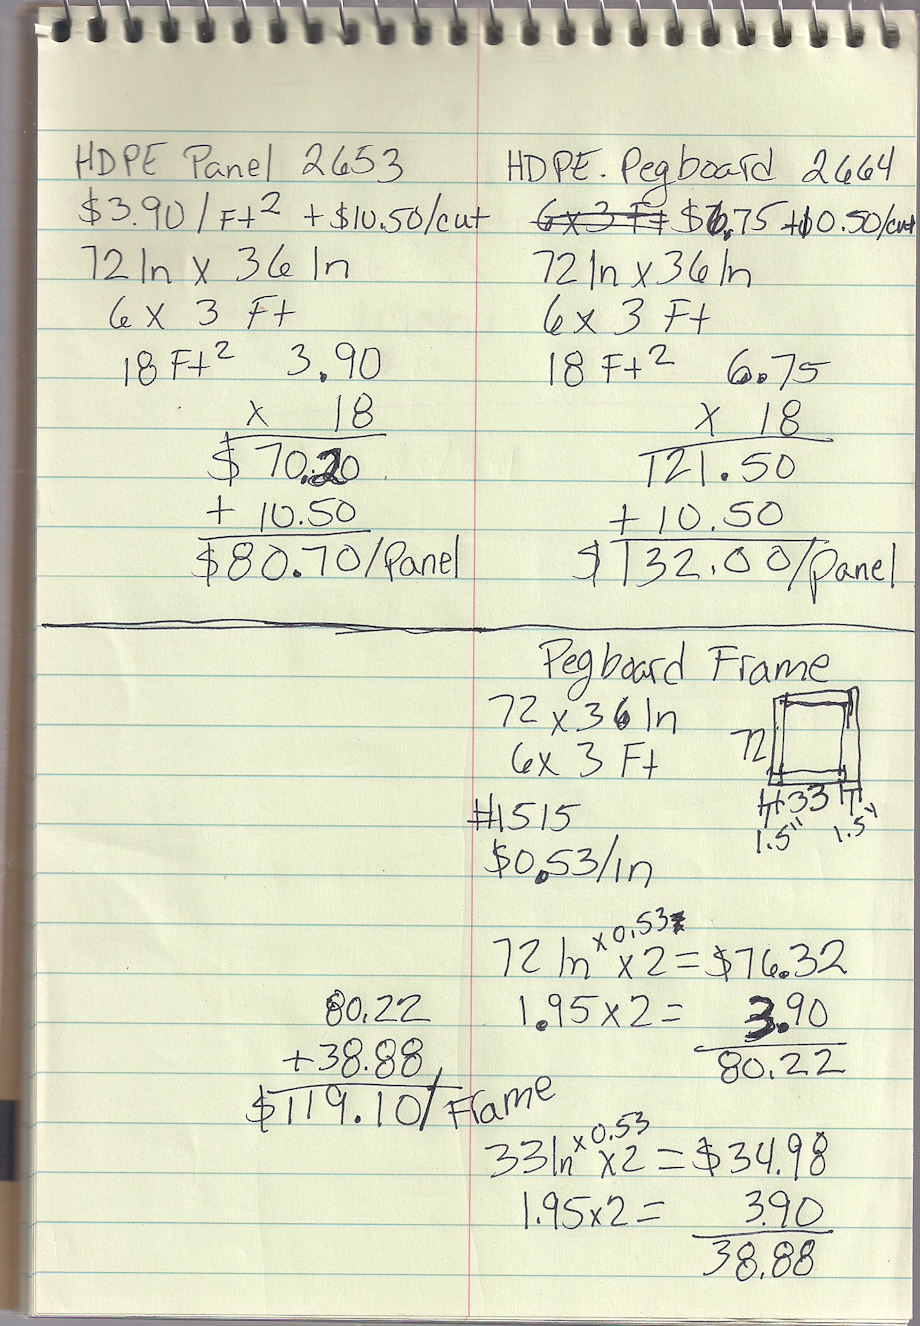 HDPE Panel 2653
$3.90/Ft² + $10.50/cut
72 In x 36 In
6 x 3 Ft
18 Ft² 3.90
x 18
$70.20
+ 10.50
$80.70/Panel
HDPE. Pegboard 2664
6x3 Ft $6.75 +$10.50/cut
72 In x 36 In
6 x 3 Ft
18 Ft² 6.75
x 18
121.50
+ 10.50
$132.00/Panel
Pegboard Frame
72 x 36 In
6x 3 Ft
72
33
1.5" 1.5"
#1515
$0.53/in
72 In x 0.53 x 2 = $76.32
1.95 x 2 = 3.90
80.22
33 In x 0.53 x 2 = $34.98
1.95 x 2 = 3.90
38.88
80.22
+38.88
$119.10/Frame